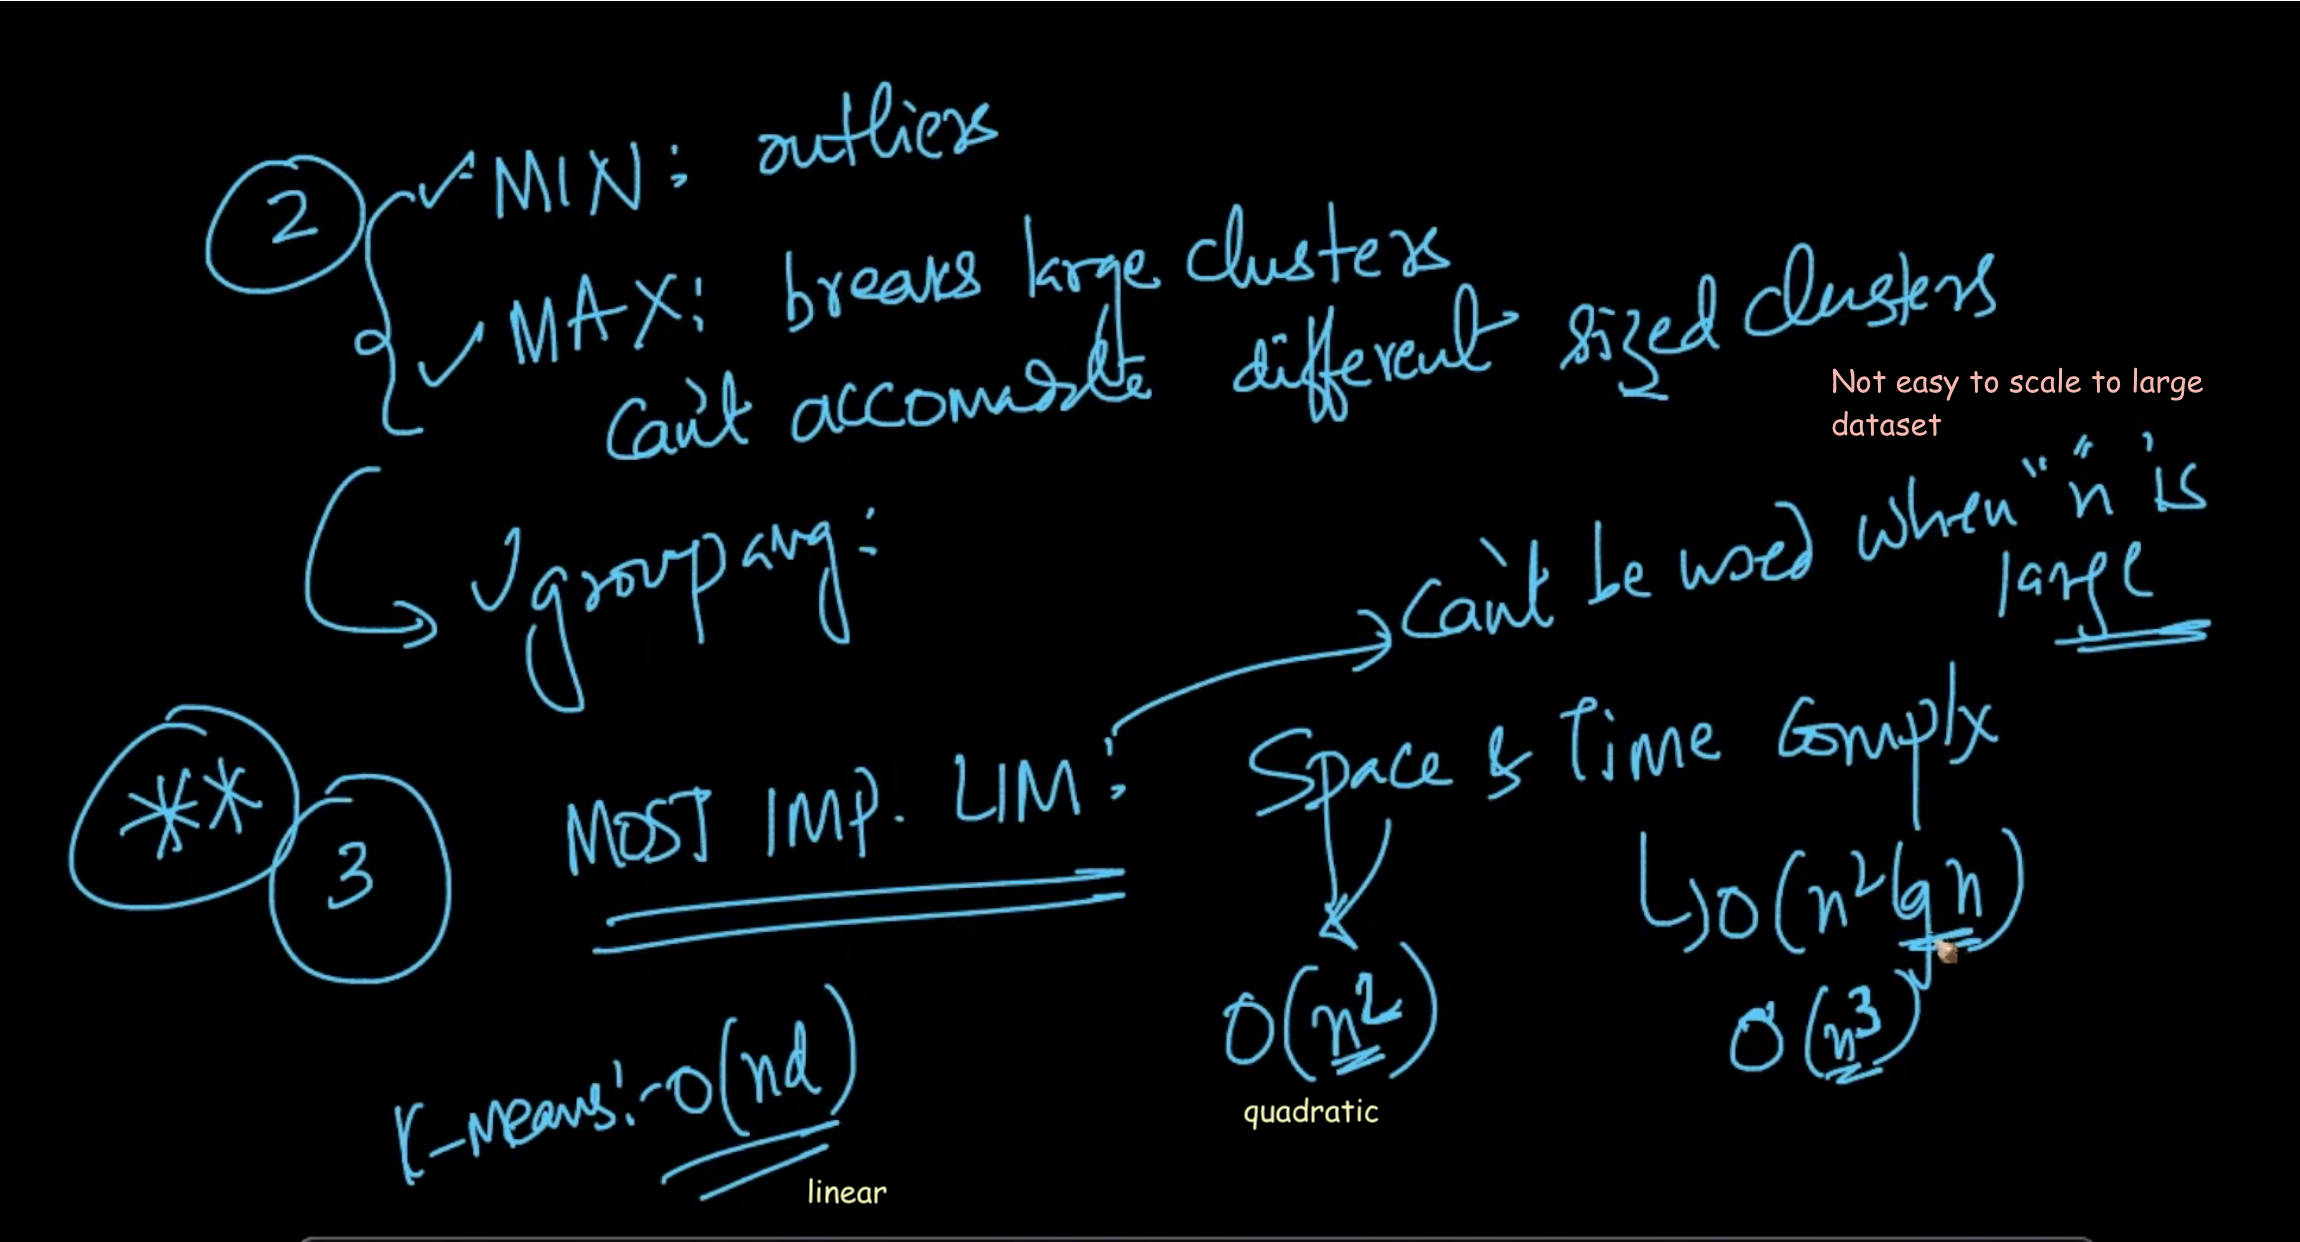 2 MIN: outliers
MAX: breaks large clusters
Can't accomodate different sized clusters
Not easy to scale to large
dataset
group avg:
Can't be used when "n" is
large
** 3 MOST IMP. LIM: Space & Time Complx
O(n² lg n)
O(n²) O(n³)
K-means:- O(nd)
quadratic
linear